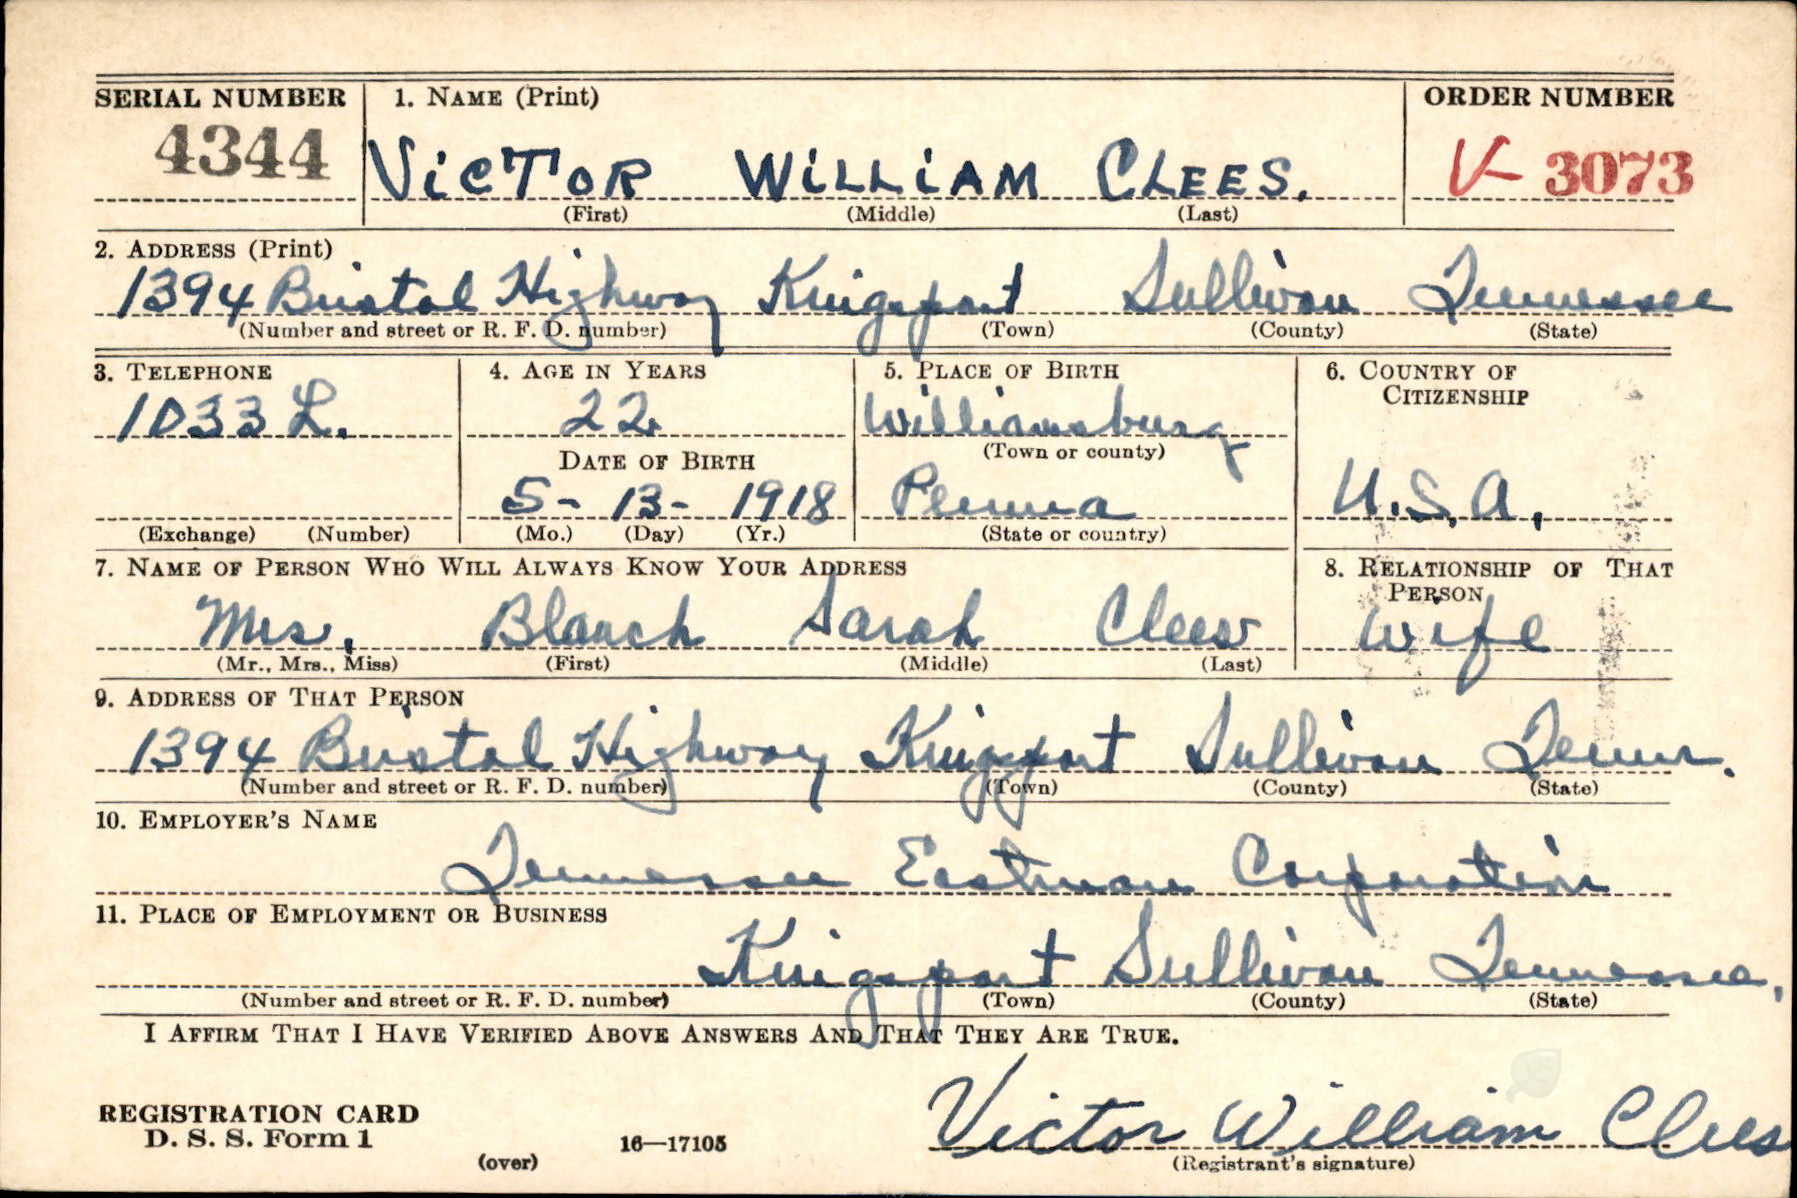 SERIAL NUMBER 1. NAME (Print) ORDER NUMBER
4344 VICTOR WILLIAM CLEES. V 3073
(First) (Middle) (Last)
2. ADDRESS (Print)
1394 Bristol Highway Kingsport Sullivan Tennessee
(Number and street or R. F. D. number) (Town) (County) (State)
3. TELEPHONE 4. AGE IN YEARS 5. PLACE OF BIRTH 6. COUNTRY OF
CITIZENSHIP
1033 L. 22 Williamsburg
(Town or county)
DATE OF BIRTH
5- 13- 1918 Penna U.S.A.
(Exchange) (Number) (Mo.) (Day) (Yr.) (State or country)
7. NAME OF PERSON WHO WILL ALWAYS KNOW YOUR ADDRESS 8. RELATIONSHIP OF THAT
PERSON
Mrs. Blanch Sarah Clees Wife
(Mr., Mrs., Miss) (First) (Middle) (Last)
9. ADDRESS OF THAT PERSON
1394 Bristol Highway Kingsport Sullivan Tenn.
(Number and street or R. F. D. number) (Town) (County) (State)
10. EMPLOYER'S NAME
Tennessee Eastman Corporation
11. PLACE OF EMPLOYMENT OR BUSINESS
Kingsport Sullivan Tennessee,
(Number and street or R. F. D. number) (Town) (County) (State)
I AFFIRM THAT I HAVE VERIFIED ABOVE ANSWERS AND THAT THEY ARE TRUE.
REGISTRATION CARD
D. S. S. Form 1 16—17105 Victor William Clees
(over) (Registrant's signature)